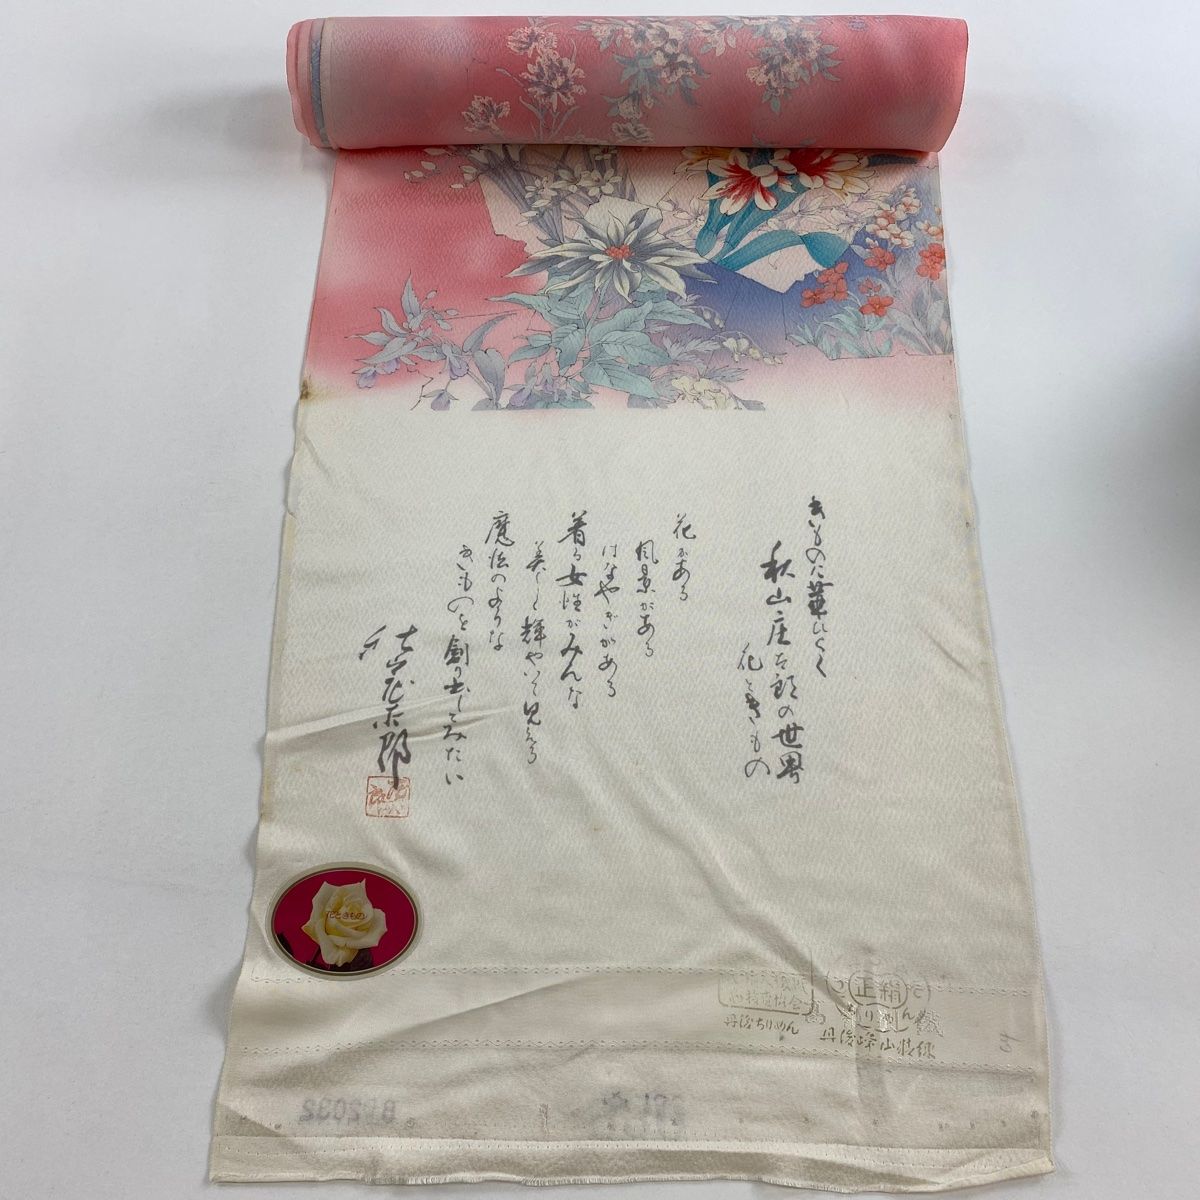 きものに華ひらく
秋山庄太郎の世界
花ときもの
花がある
風景がある
はなやぎがある
着る女性がみんな
美しく輝やいて見える
魔法のような
きものを創り出してみたい
秋山庄太郎
花ときもの
正絹
丹後ちりめん
丹後峰山精練
64